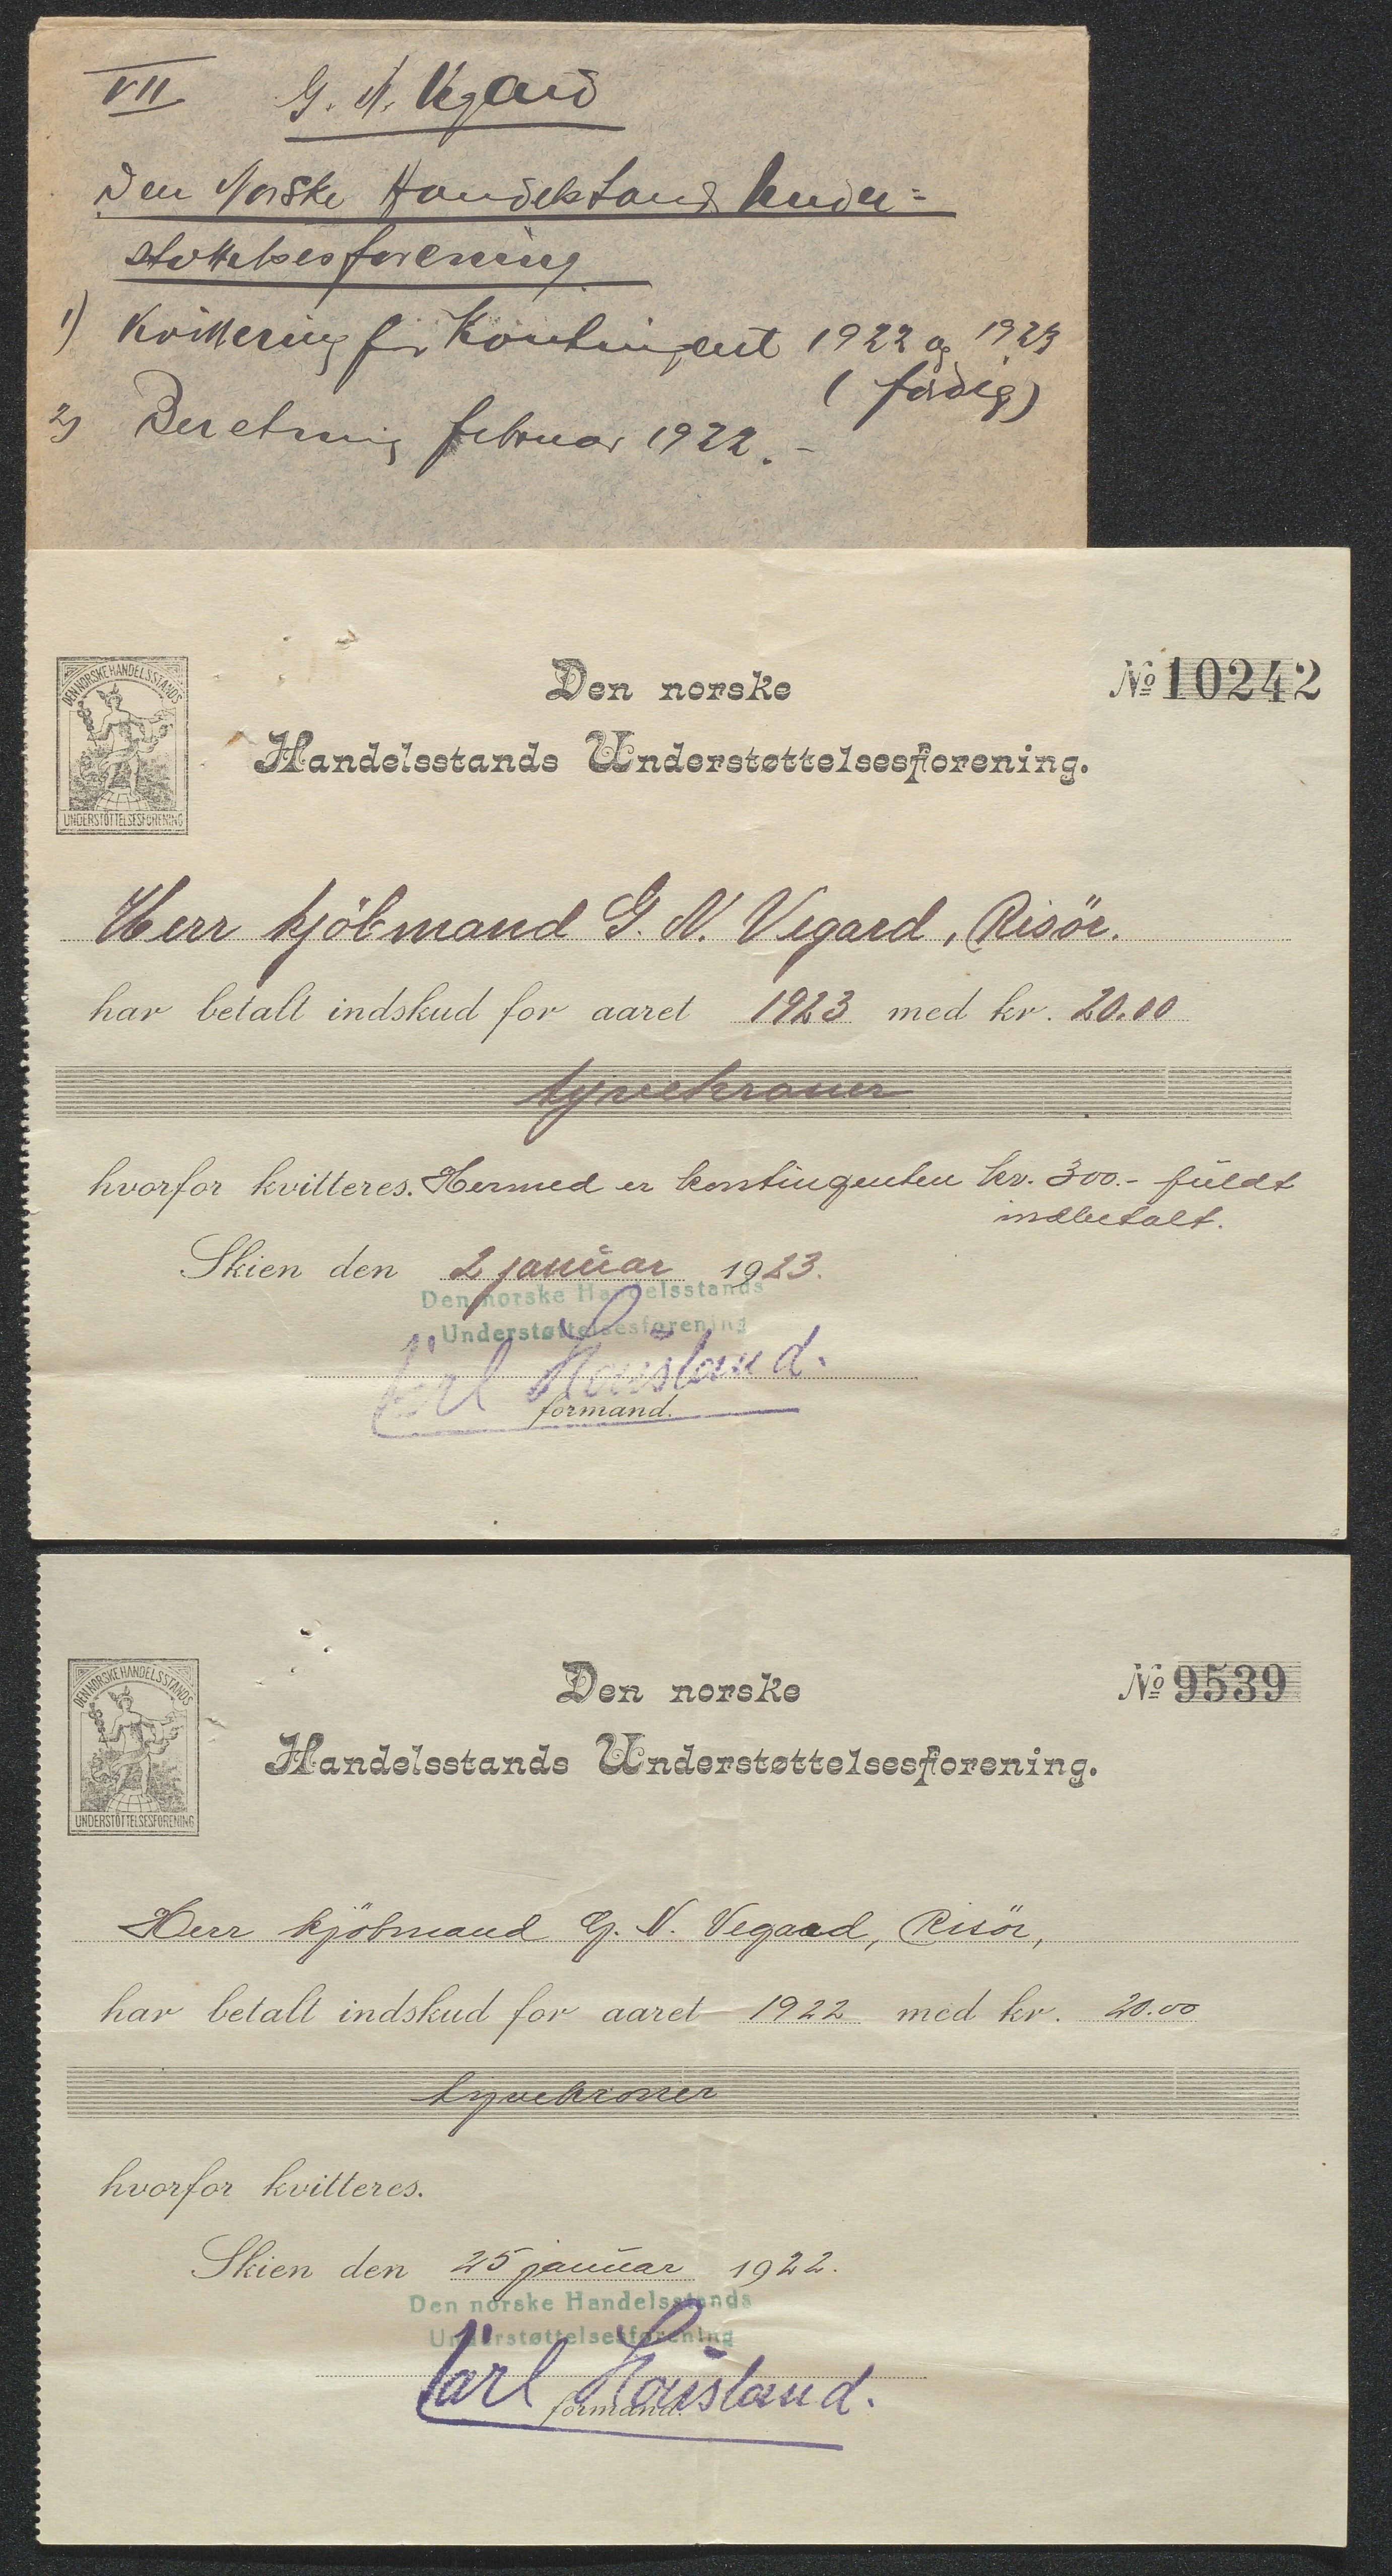 VII G. N. Vegard
Den Norske Handelstands Under=
støttelsesforening
1) Kvittering for Kontingent 1922 og 1923
(færdig)
2) Beretning februar 1922.-
DEN NORSKE HANDELSSTANDS
UNDERSTÖTTELSESFORENING
Den norske
No 10242
Handelsstands Understøttelsesforening.
Herr kjöbmand G. N. Vegard, Risör.
har betalt indskud for aaret 1923 med kr. 20.00
tyvekroner
hvorfor kvitteres. Hermed er kontingenten kr. 300.- fuldt
indbetalt.
Skien den 2 januar 1923.
Den norske Handelsstands
Understøttelsesforening
Karl Hausland.
formand.
DEN NORSKE HANDELSSTANDS
UNDERSTÖTTELSESFORENING
Den norske
No 9539
Handelsstands Understøttelsesforening.
Herr kjöbmand G. N. Vegard, Risör,
har betalt indskud for aaret 1922 med kr. 20.00
tyvekroner
hvorfor kvitteres.
Skien den 25 januar 1922.
Den norske Handelsstands
Understøttelsesforening
Karl Hausland.
formand.